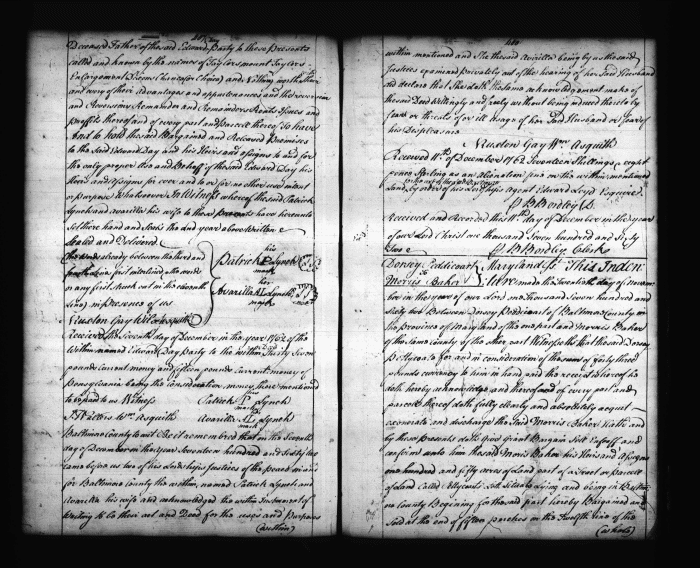 Deceased Father of the said Edward Party to these presents
called and known by the names of Taylors mount Taylors
Enlargement
and every of their Advantages and appurtenances and the reversion
and Reversions Remainder and Remainders Rents Issues and
profits thereof and of every part and parcell thereof To have
and to hold the said Bargained and Premises
to the said Edward Day and his Heirs and assigns to and for
the only proper Use and Behoof of the said Edward Day his
Heirs and assigns for ever and to and for no other use intent
or purpose Whatsoever In Witness whereof the said Patrick
Lynch and Avarilla his wife to these presents have hereunto
set there hand and Seals the day and year above Written
Sealed and Delivered
the words already between the third and
first interlined, the words
or any first struck out in the eleventh
line) in presence of us
his
Patrick P Lynch
mark
her
Avarilla AL Lynch
mark
Nuston Gay Wm Asquith
Received the Seventh day of December in the year 1762 of the
Within named Edward Day party to the within Thirty Seven
pounds current money and fifteen pounds Current money of
Pensylvania being the Consideration money there mentioned
to be paid to us Witness
his
Patrick P Lynch
mark
Wm Asquith Avarilla AL Lynch
mark
Baltimore County to wit Be it remembered that on the Seventh
day of December in the year Seventeen hundred and Sixty two
came before us two of his Lordships Justices of the peace in and
for Baltimore County the within named Patrick Lynch and
Avarilla his wife and acknowledged the within Instrument of
Writing to be their act and Deed for the uses and purposes
(within)
within mentioned And She the said Avarilla being by us the said
Justices examined privately out of the hearing of her Said Husband
did declare that She doth the Same acknowledgement make of
the said Deed Willingly and freely without being induced thereto by
fears or threats of or ill usage of her Said Husband or fear of
his Displeasure
Nuston Gay Wm Asquith
Received 11th of December 1762 Seventeen Shillings & eight
pence Sterling as an alienation fine on the within mentioned
Land by order of his Lordships Agent Edward Loyd Esquire
B Bordley
Received and Recorded this 11th day of December in the year
of our Lord Christ one thousand Seven hundred and Sixty
Two
B Bordley Clerk
Dorsey Peddicoart
to
Morris Baker
Maryland Ss This Inden
ture made the Twentieth day of Novem
ber in the year of our Lord one thousand Seven hundred and
sixty two Between Dorsey Peddicoart of Baltimore County in
the province of Maryland of the one part and Morris Baker
of the same County of the other part Witnesseth that the said Dorsey
Pettycoate for and in consideration of the sum of forty three
pounds currency to him in hand and the receipt whereof he
doth hereby acknowledge and thereof and of every part and
parcell thereof doth fully clearly and absolutely acquit
exonerate and discharge the Said Morris Baker Hath and
by these presents doth Give Grant Bargain Sell Enfeoff and
confirm unto him the said Morris Baker his Heirs and Assigns
one hundred and fifty acres of Land part of a Tract or parcell
of Land Called Situate lying and being in Baltimo
re County Beginning for the said part hereby Bargained and
Sold at the end of fifteen perches on the Twelfth line of the